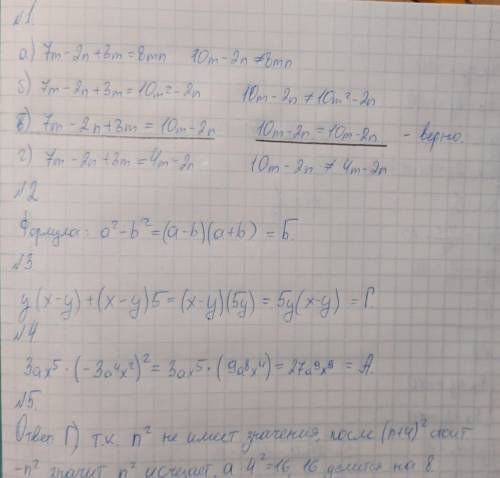 №1
а) 7m-2n+3m=8mn 10m-2n≠8mn
б) 7m-2n+3m=10m²-2n 10m-2n≠10m²-2n
в) 7m-2n+3m=10m-2n 10m-2n=10m-2n - верно.
г) 7m-2n+3m=4m-2n 10m-2n≠4m-2n
№2
Формула: a²-b²=(a-b)(a+b) = Б.
№3
y(x-y)+(x-y)5=(x-y)(5y)=5y(x-y) = Г.
№4
3ax⁵·(-3a⁴x²)²=3ax⁵·(9a⁸x⁴)=27a⁹x⁹ = А.
№5.
Ответ Г) т.к. n² не имеет значения, после (n+4)² стоит
-n² значит n² исчезает, а 4²=16, 16 делится на 8.